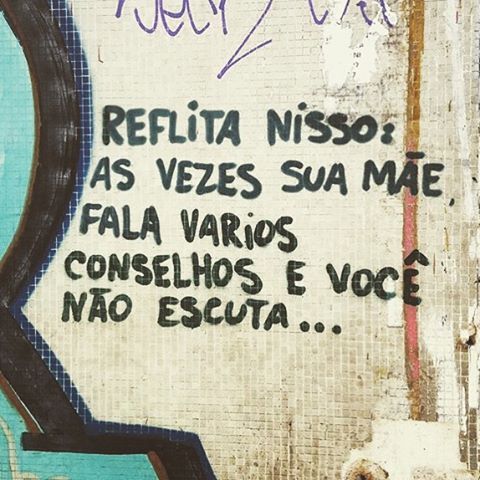 REFLITA NISSO:
AS VEZES SUA MÃE,
FALA VARIOS
CONSELHOS E VOCÊ
NÃO ESCUTA...